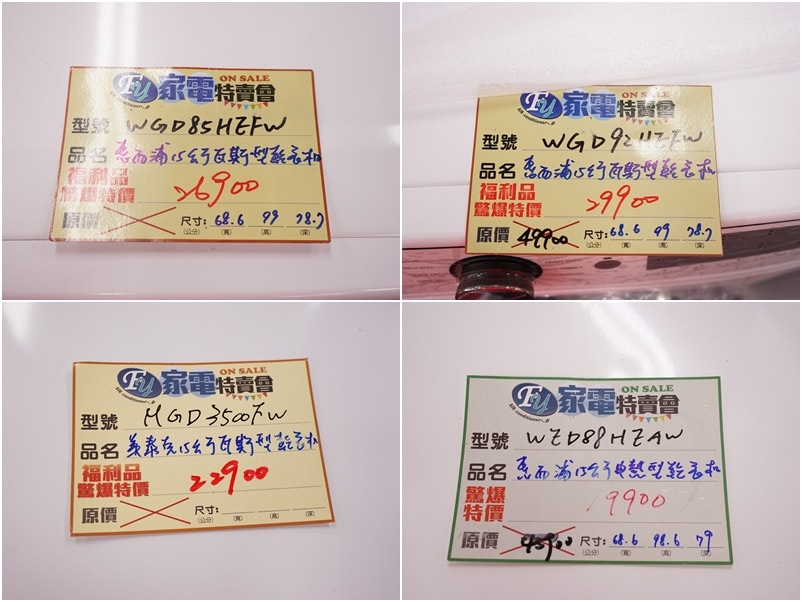 Fu 家電特賣會 ON SALE
型號 WGD85HEFW
品名 惠而浦15公斤瓦斯型乾衣机
福利品
驚爆特價 26900
原價 尺寸: 68.6 99 78.7
(公分) (寬) (高) (深)
Fu 家電特賣會 ON SALE
型號 WGD92HEFW
品名 惠而浦15公斤瓦斯型乾衣机
福利品
驚爆特價 29900
原價 49900 尺寸: 68.6 99 78.7
(公分) (寬) (高) (深)
Fu 家電特賣會 ON SALE
型號 MGD3500FW
品名 美泰克15公斤瓦斯型乾衣机
福利品
驚爆特價 22900
原價 尺寸:
(公分) (寬) (高) (深)
Fu 家電特賣會 ON SALE
型號 WED88HEAW
品名 惠而浦15公斤電熱型乾衣机
驚爆
特價 19900
原價 45900 尺寸: 68.6 98.6 79
(公分) (寬) (高) (深)